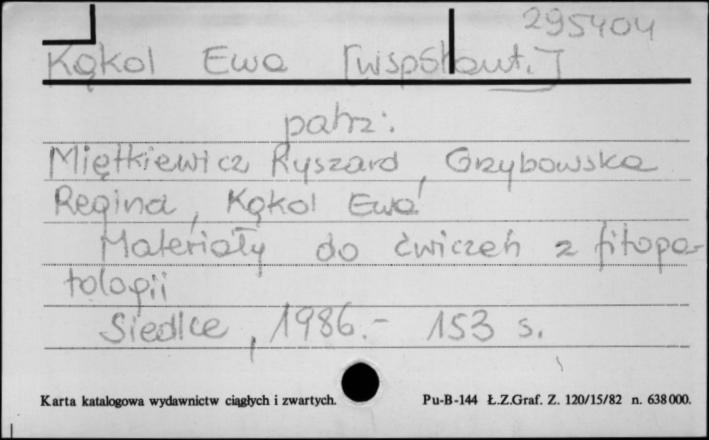 295404
Kąkol Ewa [współaut.]
patrz:
Miętkiewicz Ryszard, Grzybowska
Regina, Kąkol Ewa
Materiały do ćwiczeń z fitopa-
tologii
Siedlce, 1986.- 153 s.
Karta katalogowa wydawnictw ciągłych i zwartych. Pu-B-144 Ł.Z.Graf. Z. 120/15/82 n. 638000.